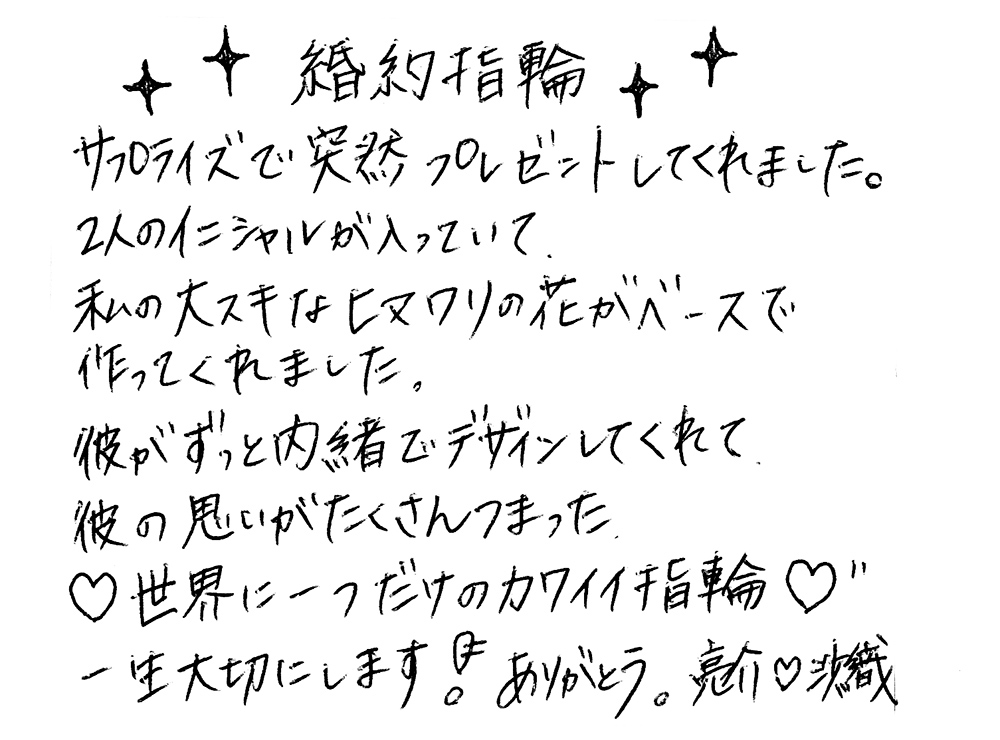 婚約指輪
サプライズで突然プレゼントしてくれました。
2人のイニシャルが入っていて、
私の大スキなヒマワリの花がベースで
作ってくれました。
彼がずっと内緒でデザインしてくれて、
彼の思いがたくさんつまった、
♡世界に一つだけのカワイイ指輪♡"
一生大切にします! ありがとう。亮介♡沙織